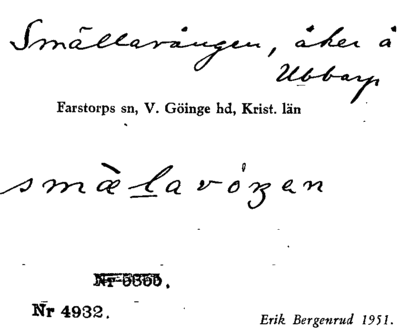 Smällavången, åker å
Ubbarp
Farstorps sn, V. Göinge hd, Krist. län
smæ̀lavóŋen
Nr 4932.
Erik Bergenrud 1951.